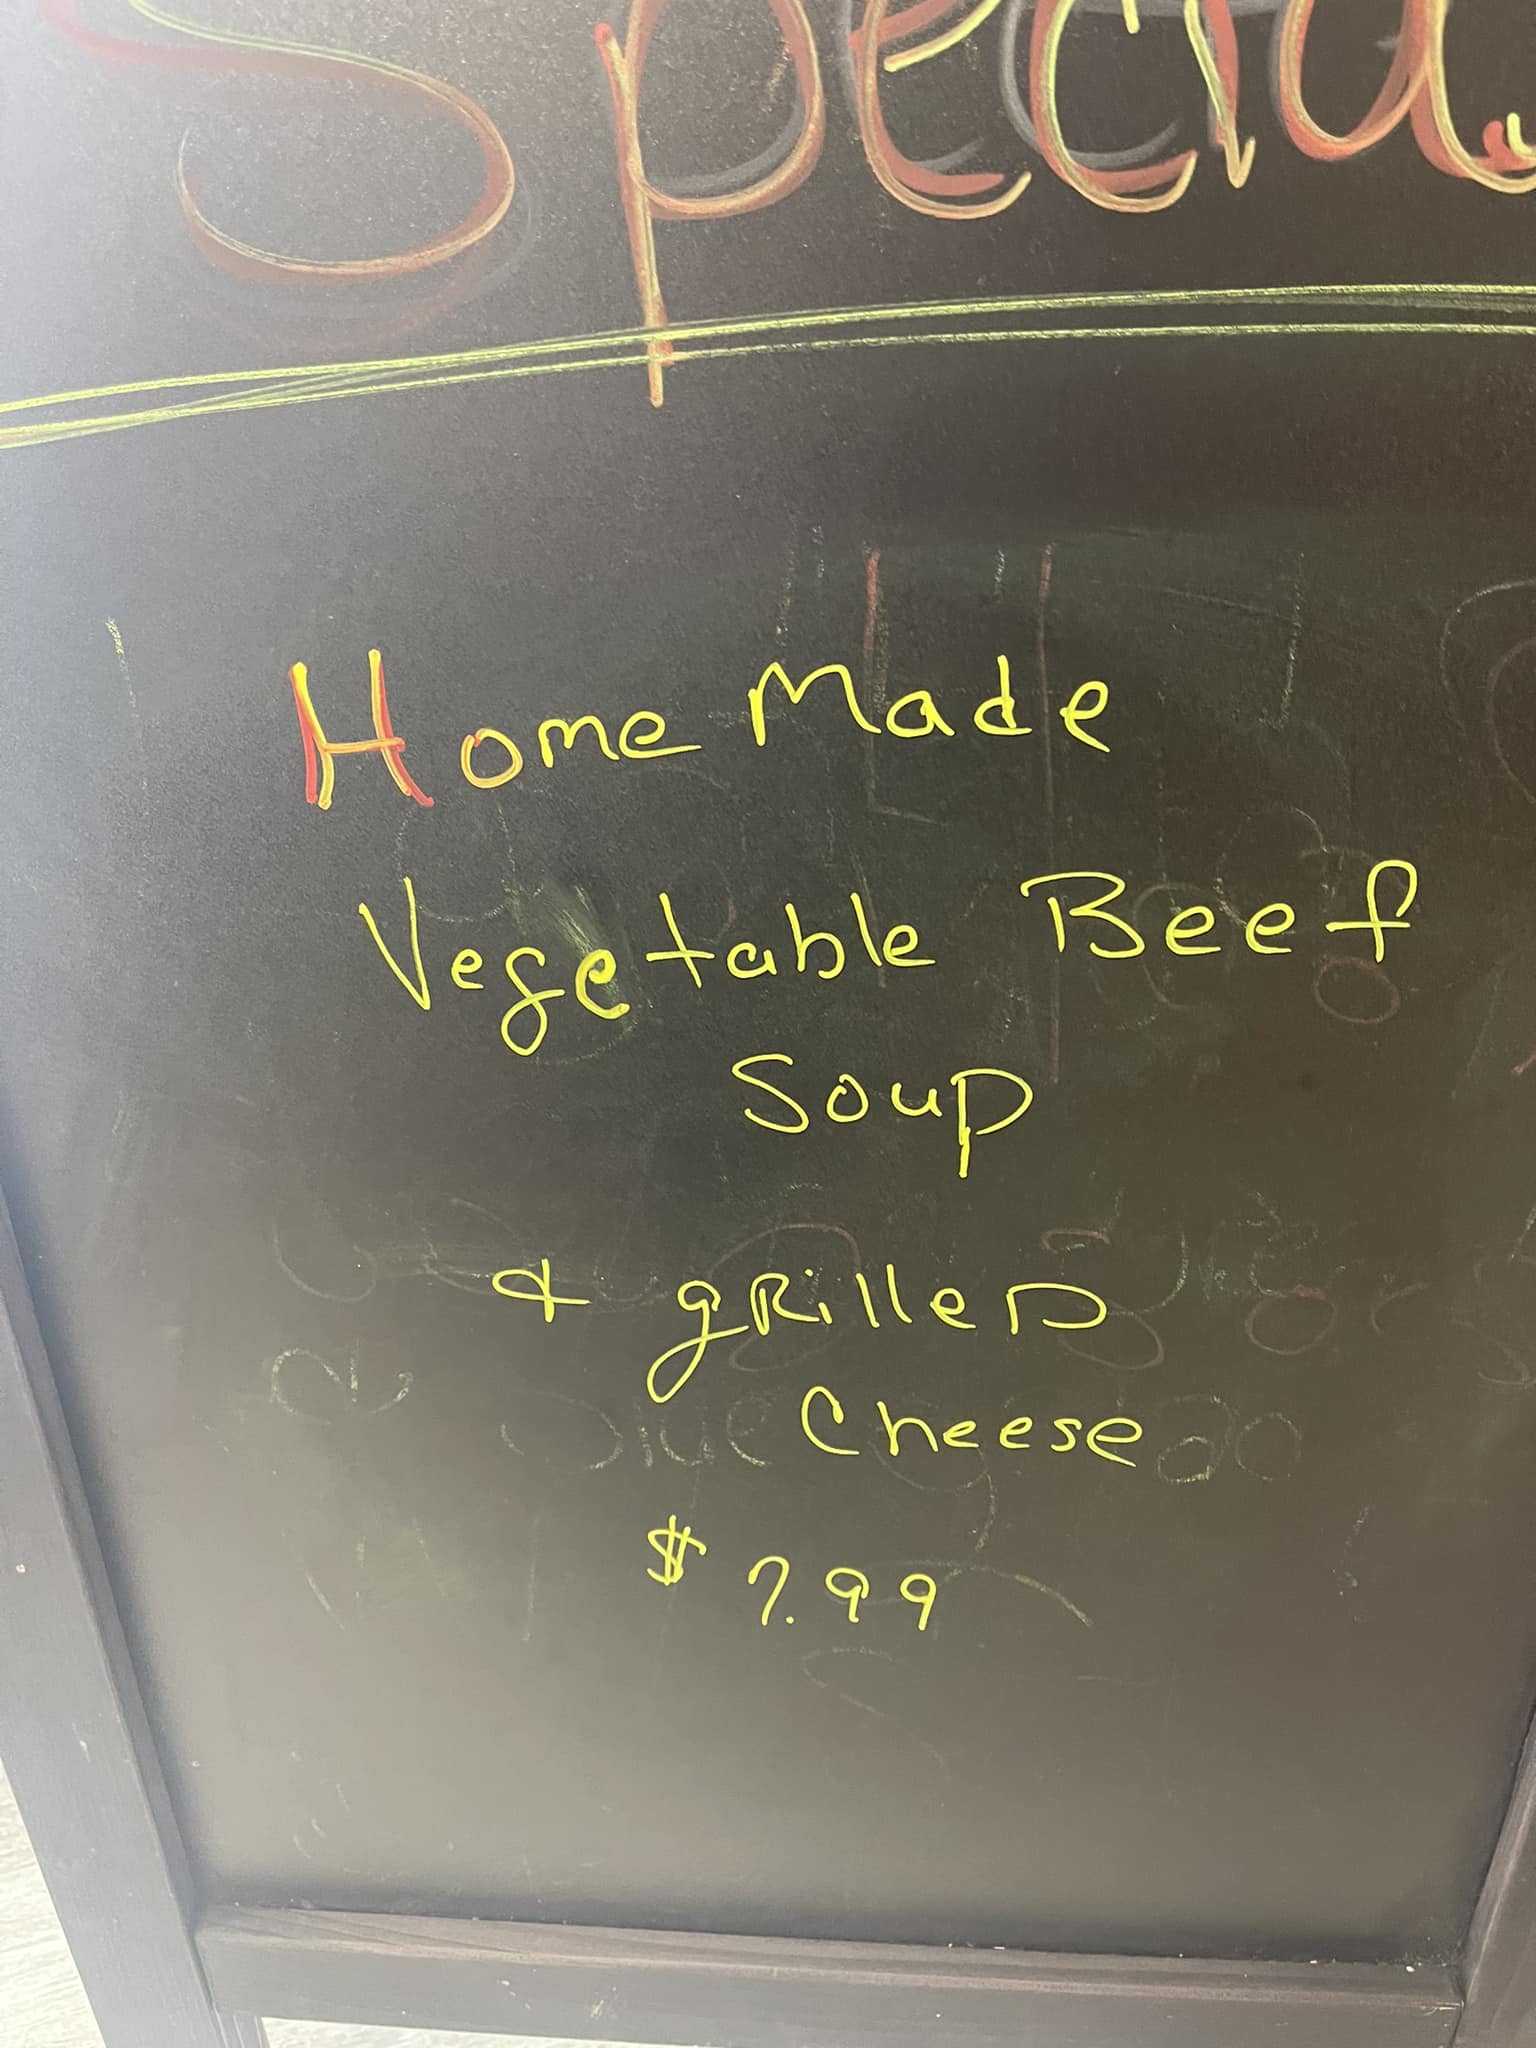 Specia
Home Made
Vegetable Beef
Soup
& grilleD
Cheese
$7.99